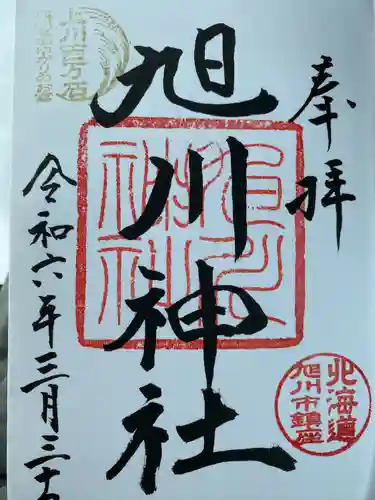 奉拝
旭川神社
令和六年三月三十
北海道
旭川市鎮座